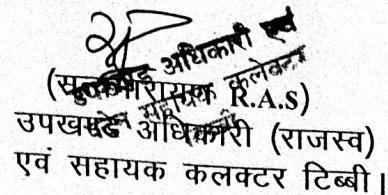 उपखण्ड अधिकारी एवं
सहायक कलेक्टर
(सत्यनारायण R.A.S)
उपखण्ड अधिकारी (राजस्व)
एवं सहायक कलक्टर टिब्बी।